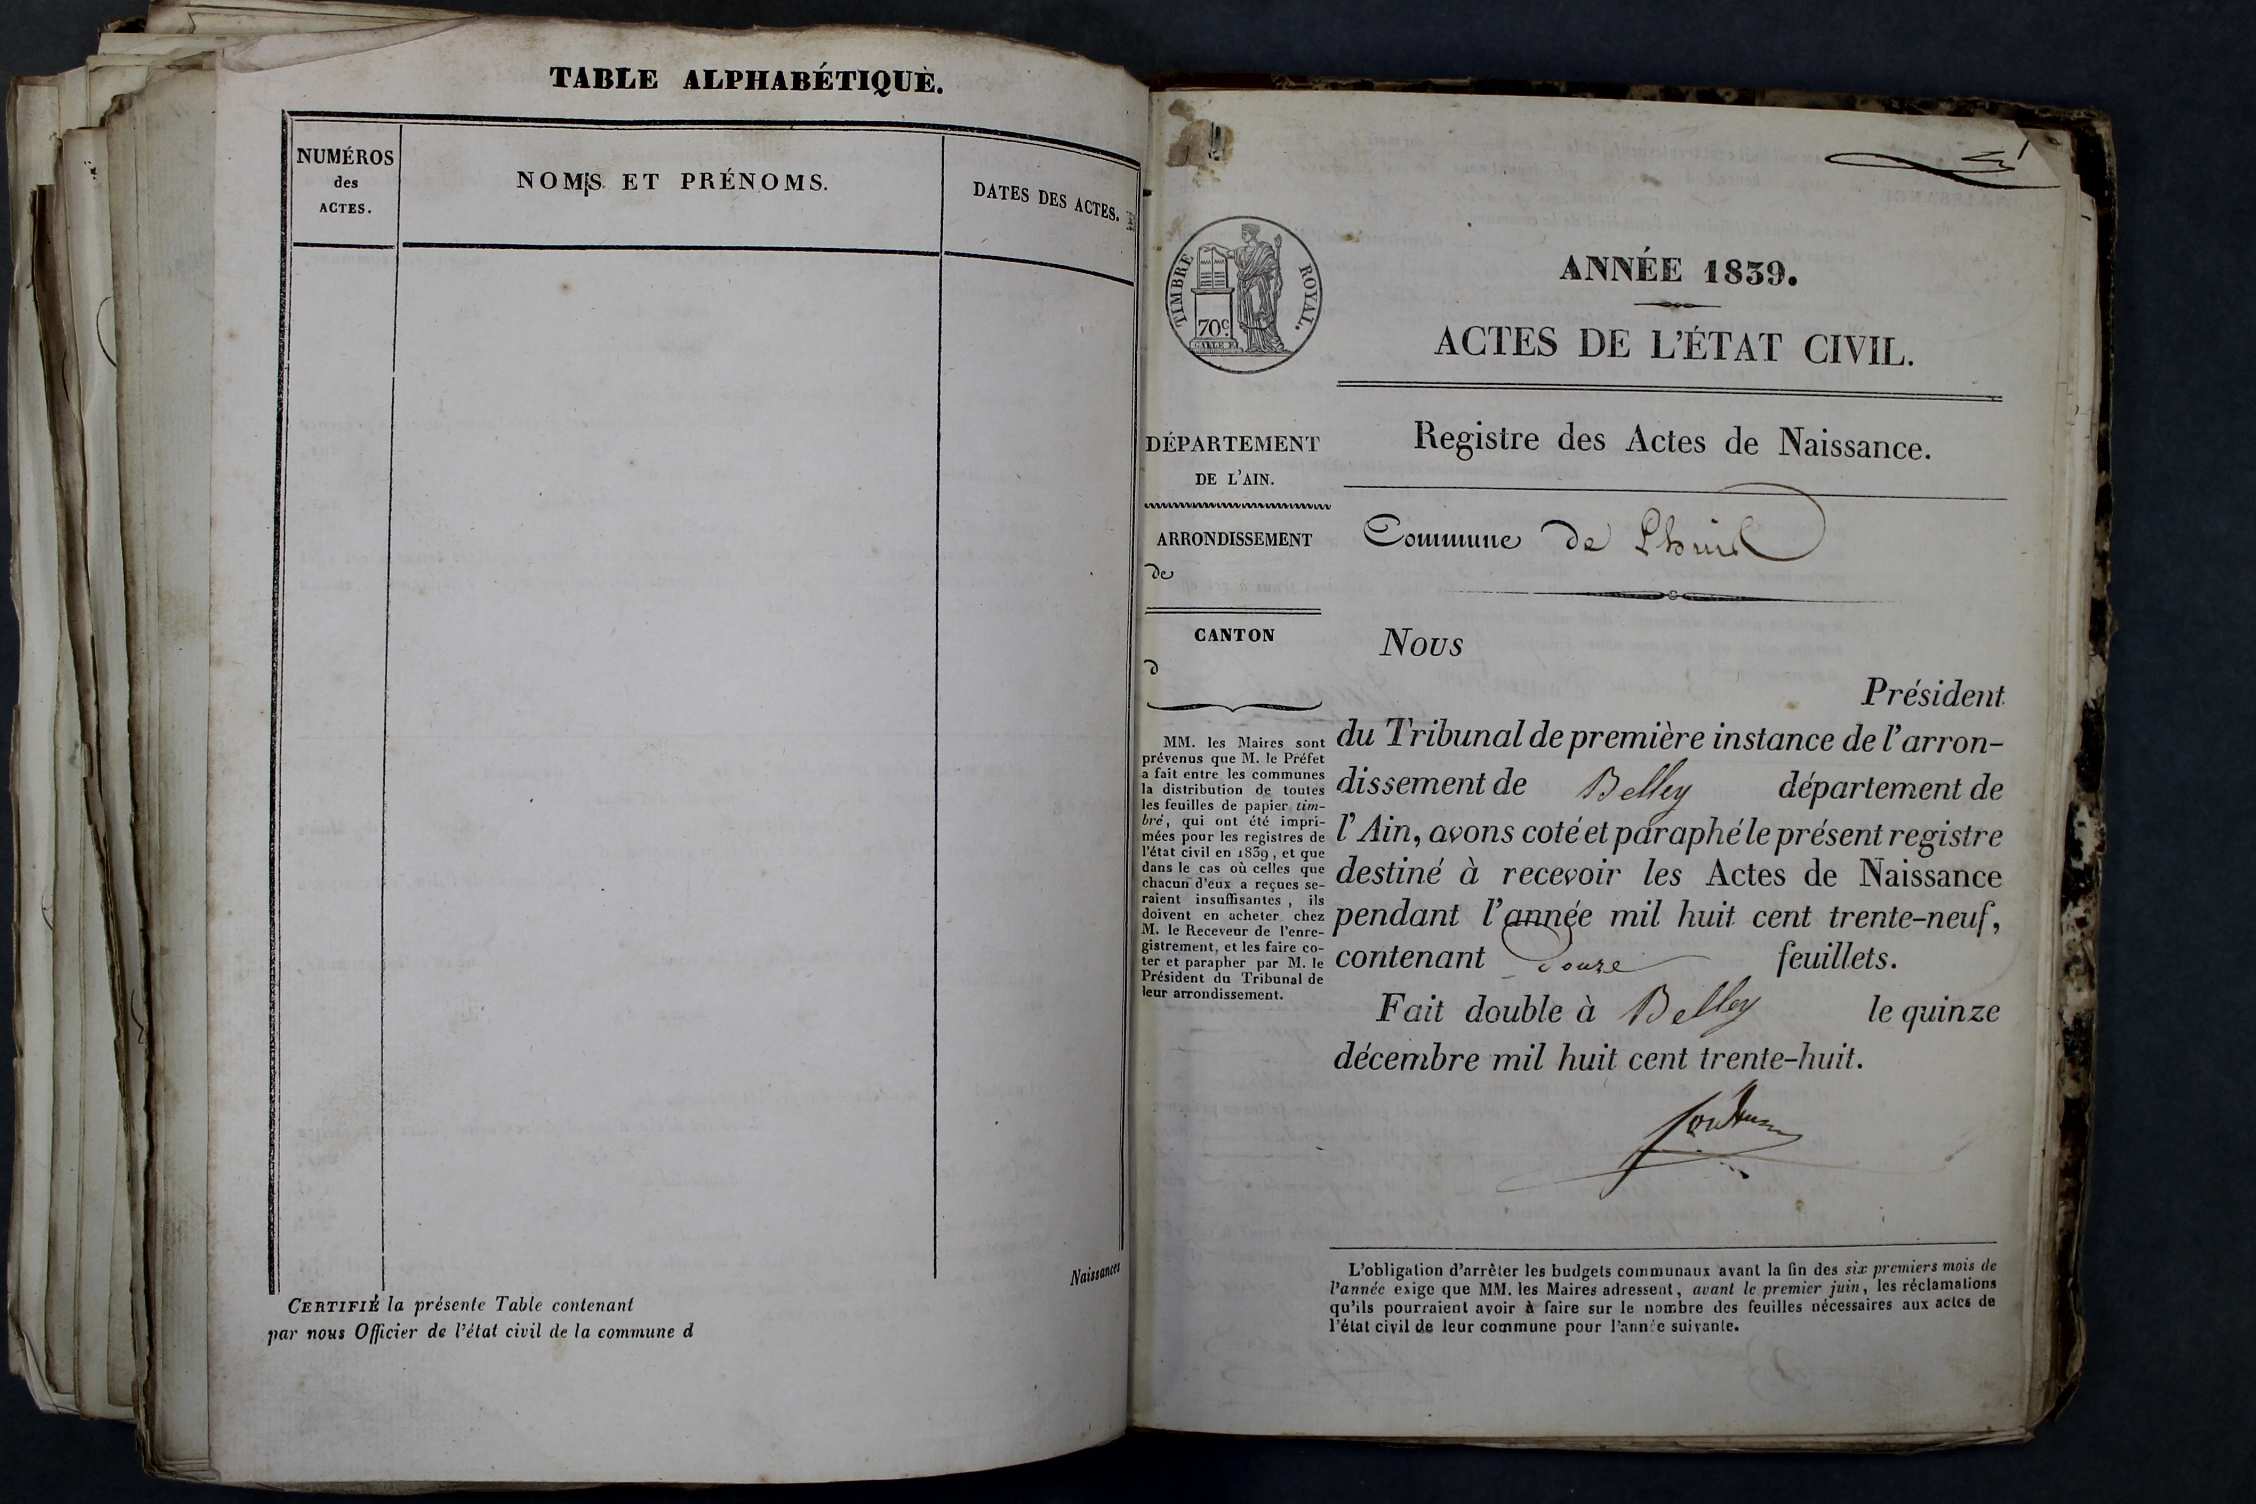 TABLE ALPHABÉTIQUE.
NUMÉROS
des
ACTES.
NOMS ET PRÉNOMS.
DATES DES ACTES.
Naissances
CERTIFIÉ la présente Table contenant
par nous Officier de l'état civil de la commune d
1
TIMBRE ROYAL.
70c.
ANNÉE 1839.
ACTES DE L'ÉTAT CIVIL.
Registre des Actes de Naissance.
DÉPARTEMENT
DE L'AIN.
ARRONDISSEMENT
de
CANTON
d
MM. les Maires sont
prévenus que M. le Préfet
a fait entre les communes
la distribution de toutes
les feuilles de papier tim-
bré, qui ont été impri-
mées pour les registres de
l'état civil en 1839, et que
dans le cas où celles que
chacun d'eux a reçues se-
raient insuffisantes, ils
doivent en acheter chez
M. le Receveur de l'enre-
gistrement, et les faire co-
ter et parapher par M. le
Président du Tribunal de
leur arrondissement.
Commune de Lhuis
Nous
Président
du Tribunal de première instance de l'arron-
dissement de Belley département de
l'Ain, avons coté et paraphé le présent registre
destiné à recevoir les Actes de Naissance
pendant l'année mil huit cent trente-neuf,
contenant Douze feuillets.
Fait double à Belley le quinze
décembre mil huit cent trente-huit.
L'obligation d'arrêter les budgets communaux avant la fin des six premiers mois de
l'année exige que MM. les Maires adressent, avant le premier juin, les réclamations
qu'ils pourraient avoir à faire sur le nombre des feuilles nécessaires aux actes de
l'état civil de leur commune pour l'année suivante.